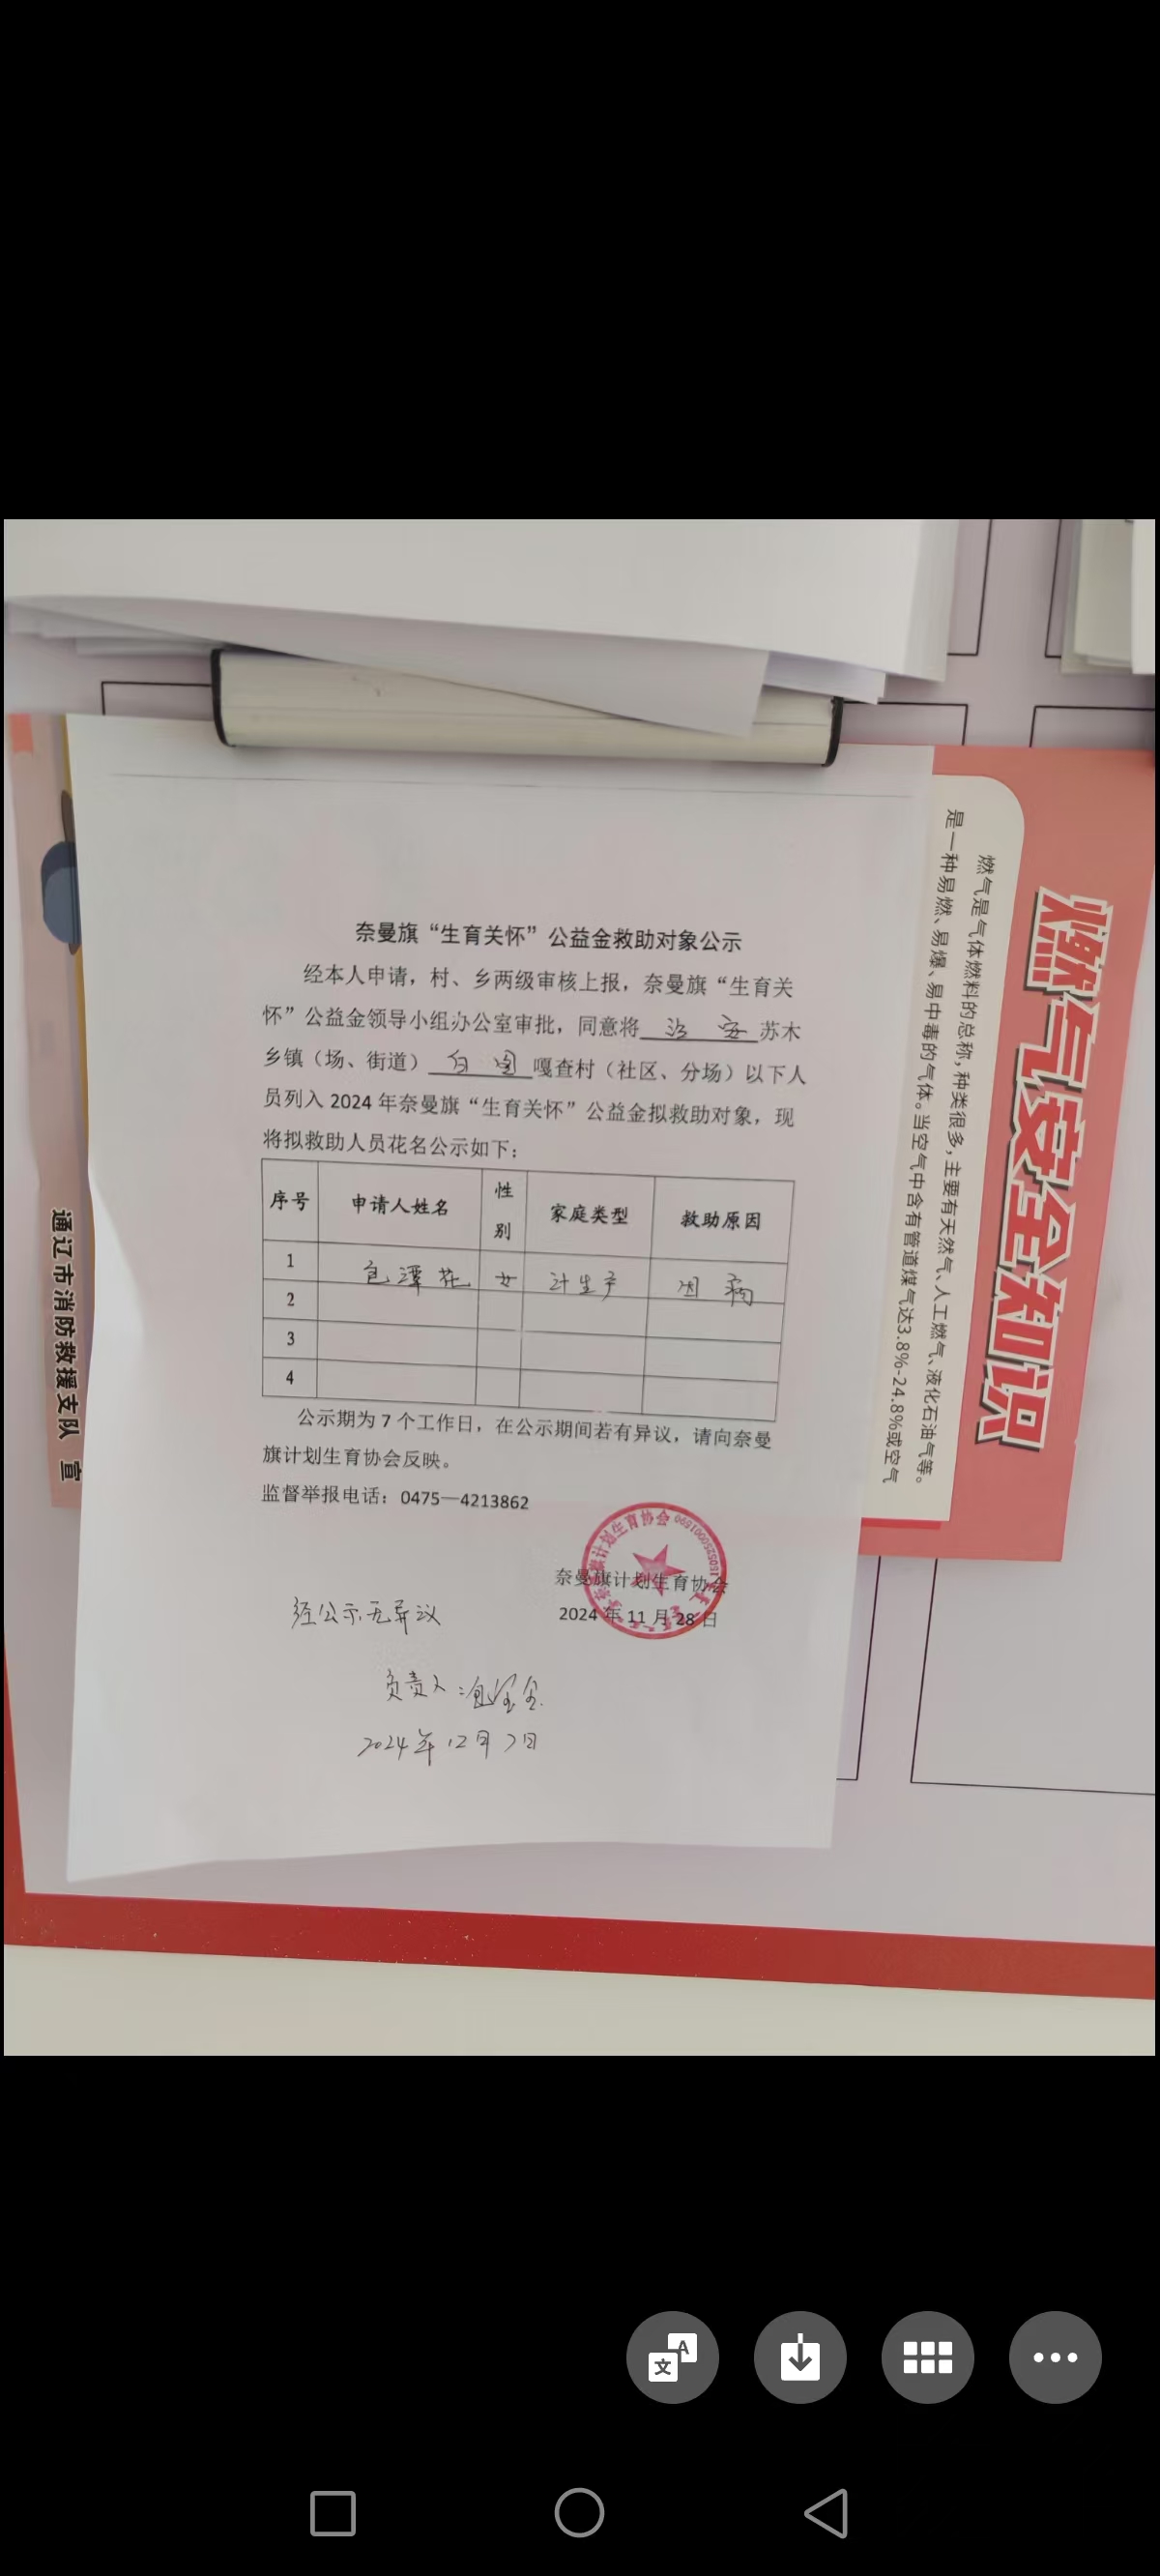 奈曼旗“生育关怀”公益金救助对象公示
经本人申请，村、乡两级审核上报，奈曼旗“生育关
怀”公益金领导小组办公室审批，同意将 治安 苏木
乡镇（场、街道） 白 嘎查村（社区、分场）以下人
员列入 2024 年奈曼旗“生育关怀”公益金拟救助对象，现
将拟救助人员花名公示如下：
序号 申请人姓名 性别 家庭类型 救助原因
1 包 花 女 计生户 因病
2
3
4
公示期为 7 个工作日，在公示期间若有异议，请向奈曼
旗计划生育协会反映。
监督举报电话：0475—4213862
奈曼旗计划生育协会
2024 年 11 月 28 日
经公示无异议
负责人：包
2024年12月7日
燃气安全知识
燃气是气体燃料的总称，种类很多，主要有天然气、人工燃气、液化石油气等。
是一种易燃、易爆、易中毒的气体。当空气中含有管道煤气达3.8%-24.8%或空气
通辽市消防救援支队 宣